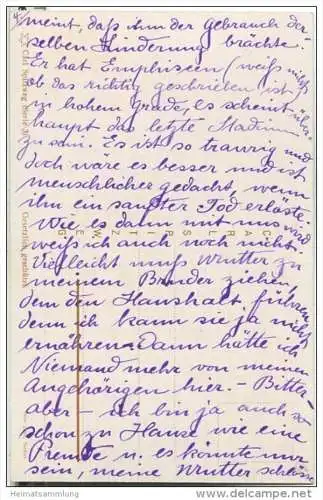 meint, daß ihm der Gebrauch der-
selben Linderung brächte. -
Er hat Emphiseen (weiß nicht,
ob das richtig geschrieben ist)
zu hohem Grade, es scheint über-
haupt das letzte Stadium
zu sein. Es ist so traurig und
doch wäre es besser und ist
menschlicher gedacht, wenn
ihn ein sanfter Tod erlöste.
Wie es dann mit uns wird
weiß ich auch noch nicht.
Vielleicht muß Mutter zu
meinem Bruder ziehen,
dem den Haushalt führen,
denn ich kann sie ja nicht
ernähren. Dann hätte ich
Niemand mehr von meinen
Angehörigen hier. - Bitter
aber - ich bin ja auch so
schon zu Hause wie eine
Fremde u. es könnte nur
sein, meine Mutter schlösse
Gesetzlich geschützt
Heimatsammlung
www.ansichtskarten-center.de